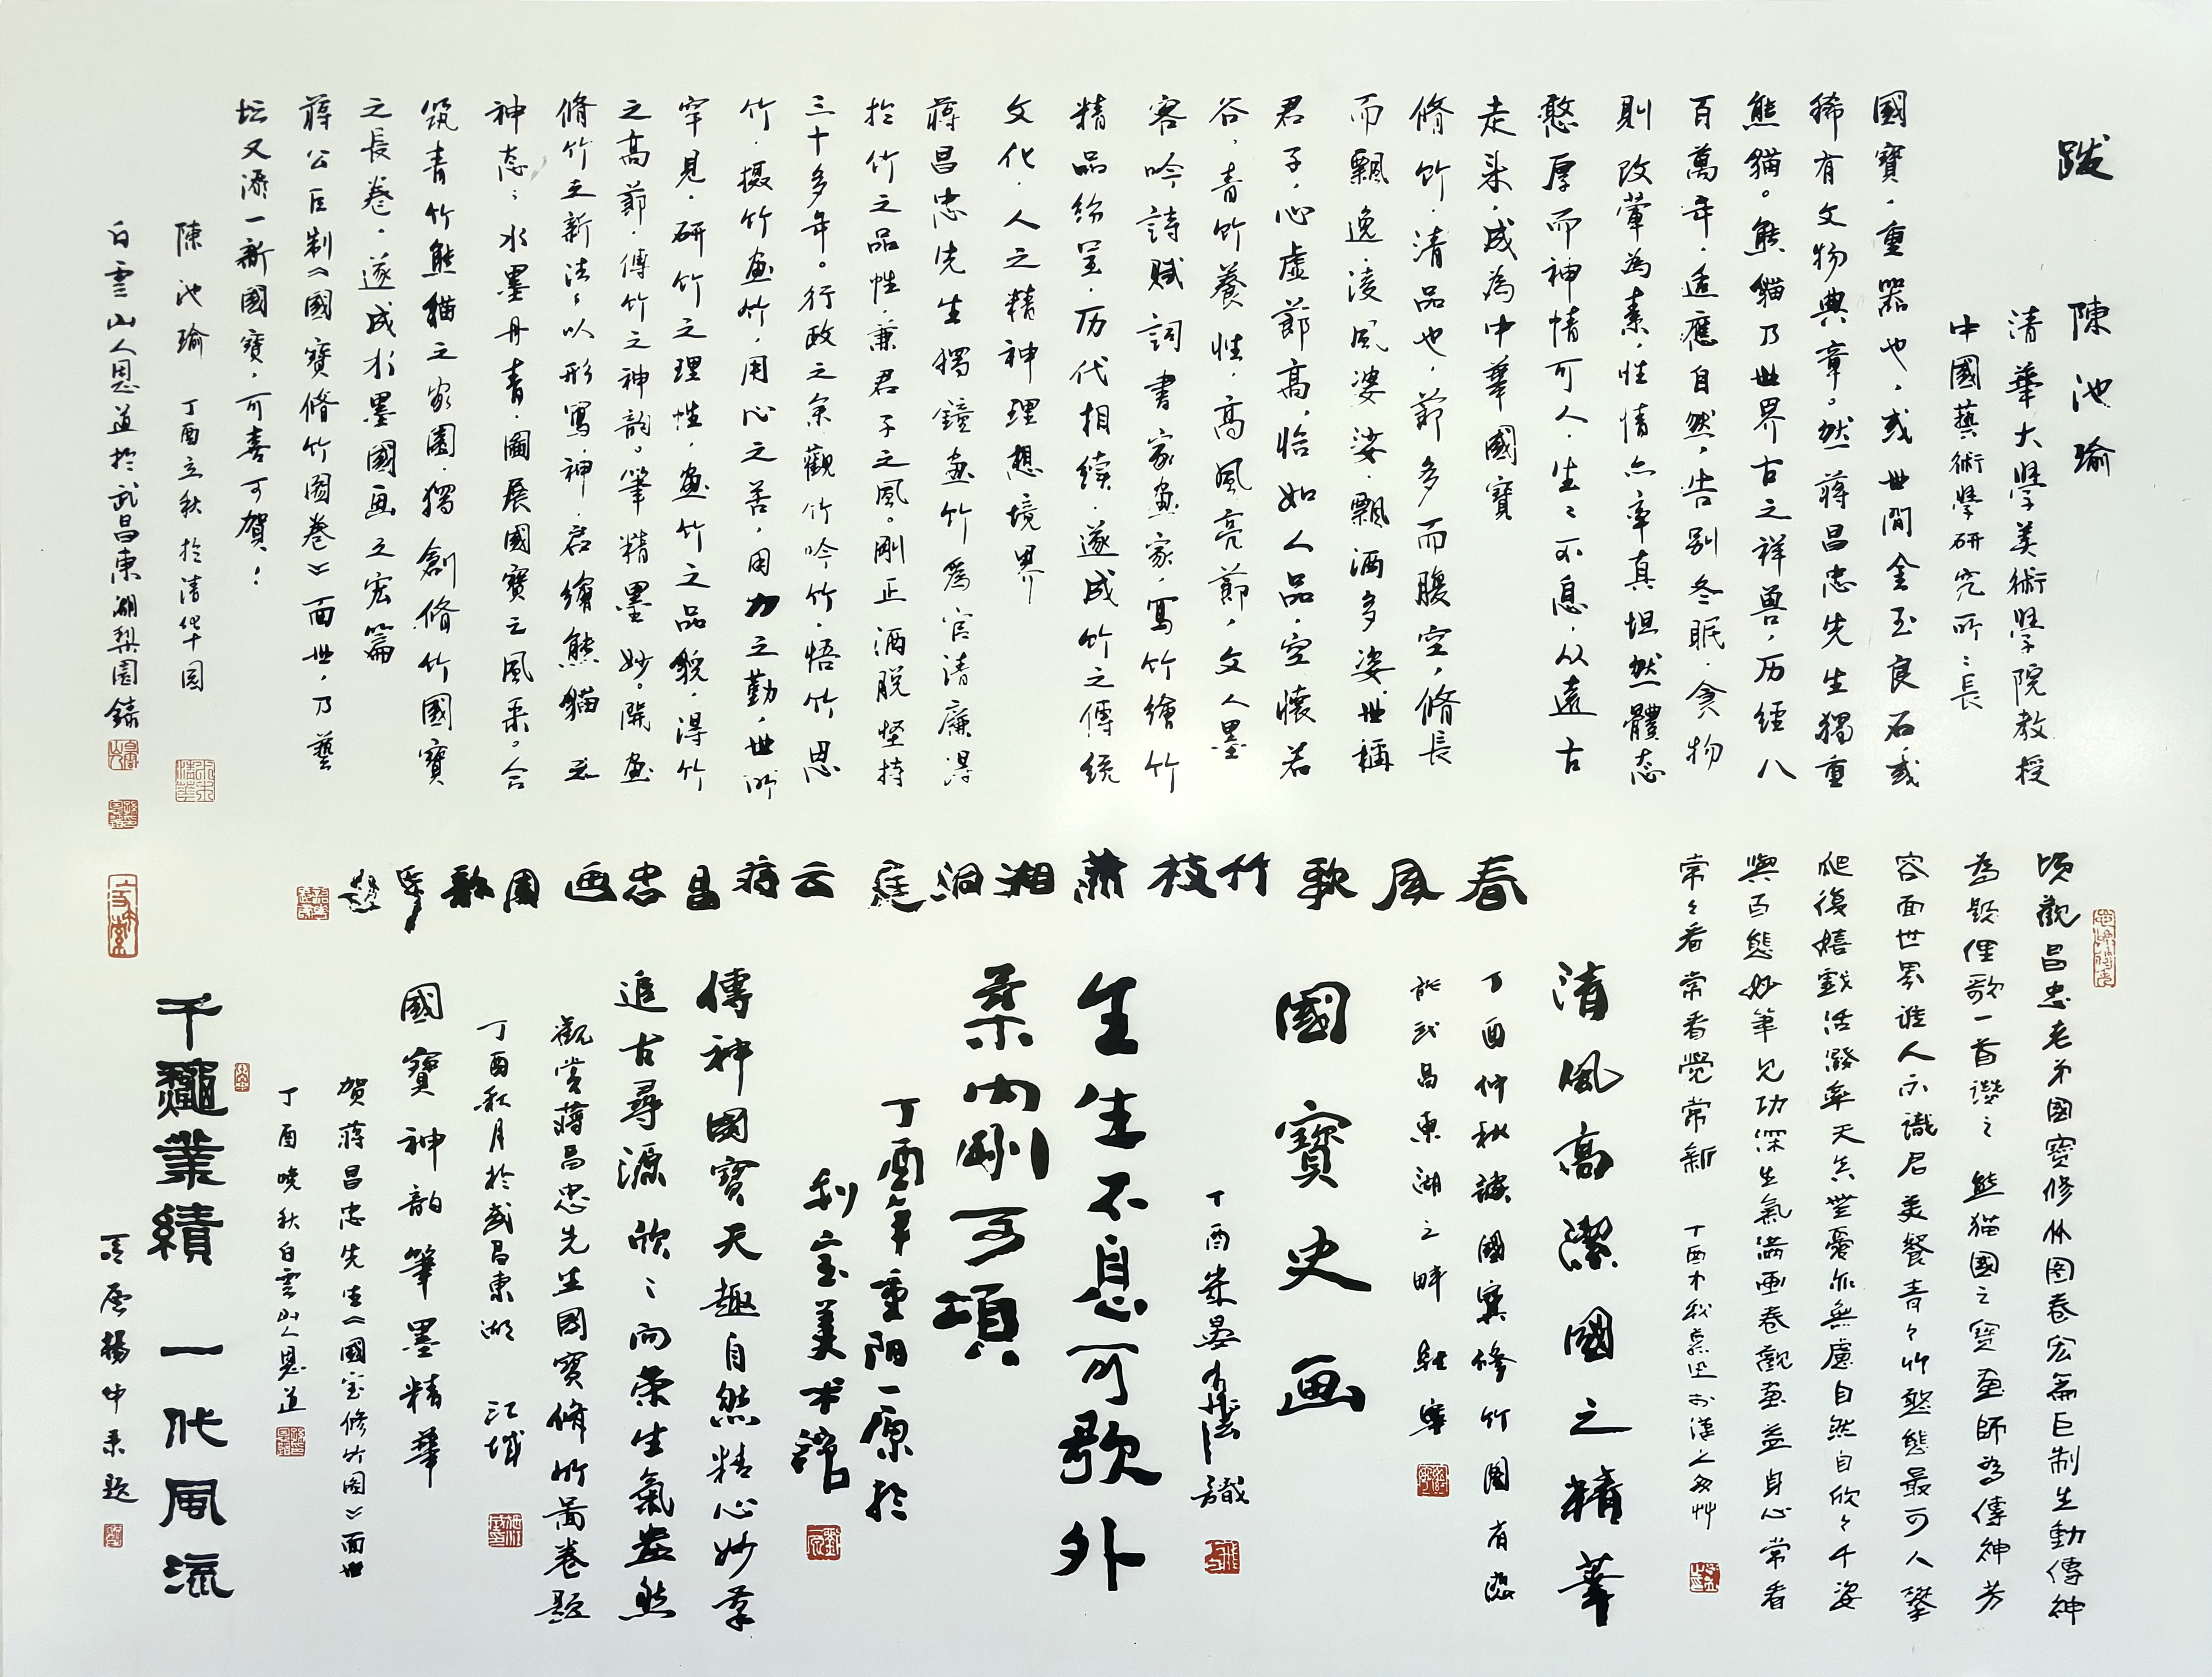 跋
陳池瑜
清華大學美術學院教授
中國藝術學研究所:長
國寶,重器也,或世間金玉良石或
稀有文物典章。然蔣昌忠先生獨重
熊貓。熊貓乃世界古之祥兽,历經八
百萬年,适應自然,告别冬眠,貪物
則改葷為素,性情亦率真坦然體态
憨厚而神情可人,生:不息,从遠古
走来,成為中華國寶
脩竹,清品也,節多而腹空,脩長
而飄逸,凌風婆娑,飄洒多姿,世稱
君子,心虚節高,恰如人品,空懷若
谷,青竹養性,高風亮節,文人墨
客吟詩賦詞書家画家,寫竹繪竹
精品纷呈,历代相续,遂成竹之傳統
文化,人之精神理想境界
蔣昌忠先生獨鐘画竹為官清廉得
於竹之品性,兼君子之風。剛正洒脱坚持
三十多年。行政之余觀竹吟竹,悟竹思
竹,摄竹画竹,用心之苦,用力之勤,世所
罕見,研竹之理性,画竹之品貌,得竹
之高節,傳竹之神韵。筆精墨妙。開画
脩竹之新法;以形寫神,启繪熊貓之
神态;水墨丹青,圖展國寶之風采。合
筑青竹熊貓之家園,獨創脩竹國寶
之長卷,遂成水墨國画之宏篇
蔣公巨制《國寶脩竹图卷》面世,乃藝
坛又添一新國寶,可喜可賀!
陳池瑜 丁酉立秋於清华园
白雲山人恩道於武昌東湖梨園錄
春風歌竹枝蕭湘洞庭云蔣昌忠画園
頃觀昌忠老弟國寶修竹图卷宏篇巨制生動傳神
為題俚歌一首讚之 熊猫國之寶画師為傳神芳
容面世界誰人不識君美餐青々竹憨態最可人攀
爬復嬉戲活潑率天真無憂亦無慮自然自欣々千姿
與百態妙筆見功深生氣满画卷觀画益身心常看
常々看常看覺常新 丁酉
清風高潔國之精華
丁酉仲秋讀國寶修竹圖有感
於武昌東湖之畔
國寶史画
丁酉 識
生生不息可歌外
柔内剛可頌
丁酉年重阳一原於
利宝美术館
傳神國寶天趣自然精心妙筆
追古尋源欣:向荣生氣盎然
觀賞蔣昌忠先生國寶脩竹圖卷題
丁酉秋月於武昌東湖 江城
國寶神韵筆墨精華
賀蔣昌忠先生《國宝修竹图》面世
丁酉晚秋白雲山人恩道
千秋業績一代風流
揚中 题